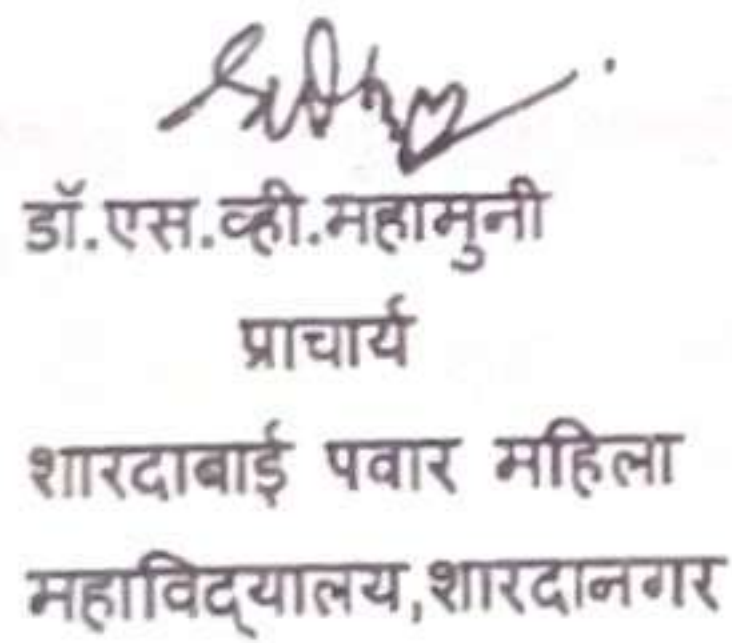 डॉ.एस.व्ही.महामुनी
प्राचार्य
शारदाबाई पवार महिला
महाविद्यालय,शारदानगर